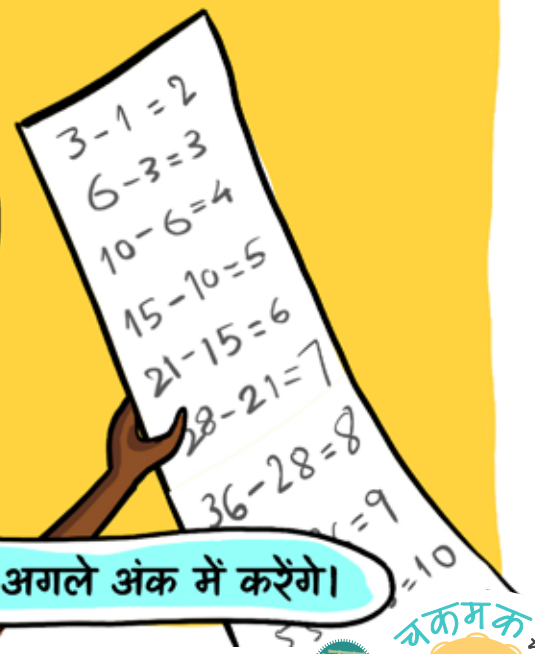 3-1=2
6-3=3
10-6=4
15-10=5
21-15=6
28-21=7
36-28=8
=9
=10
अगले अंक में करेंगे।
चकमक